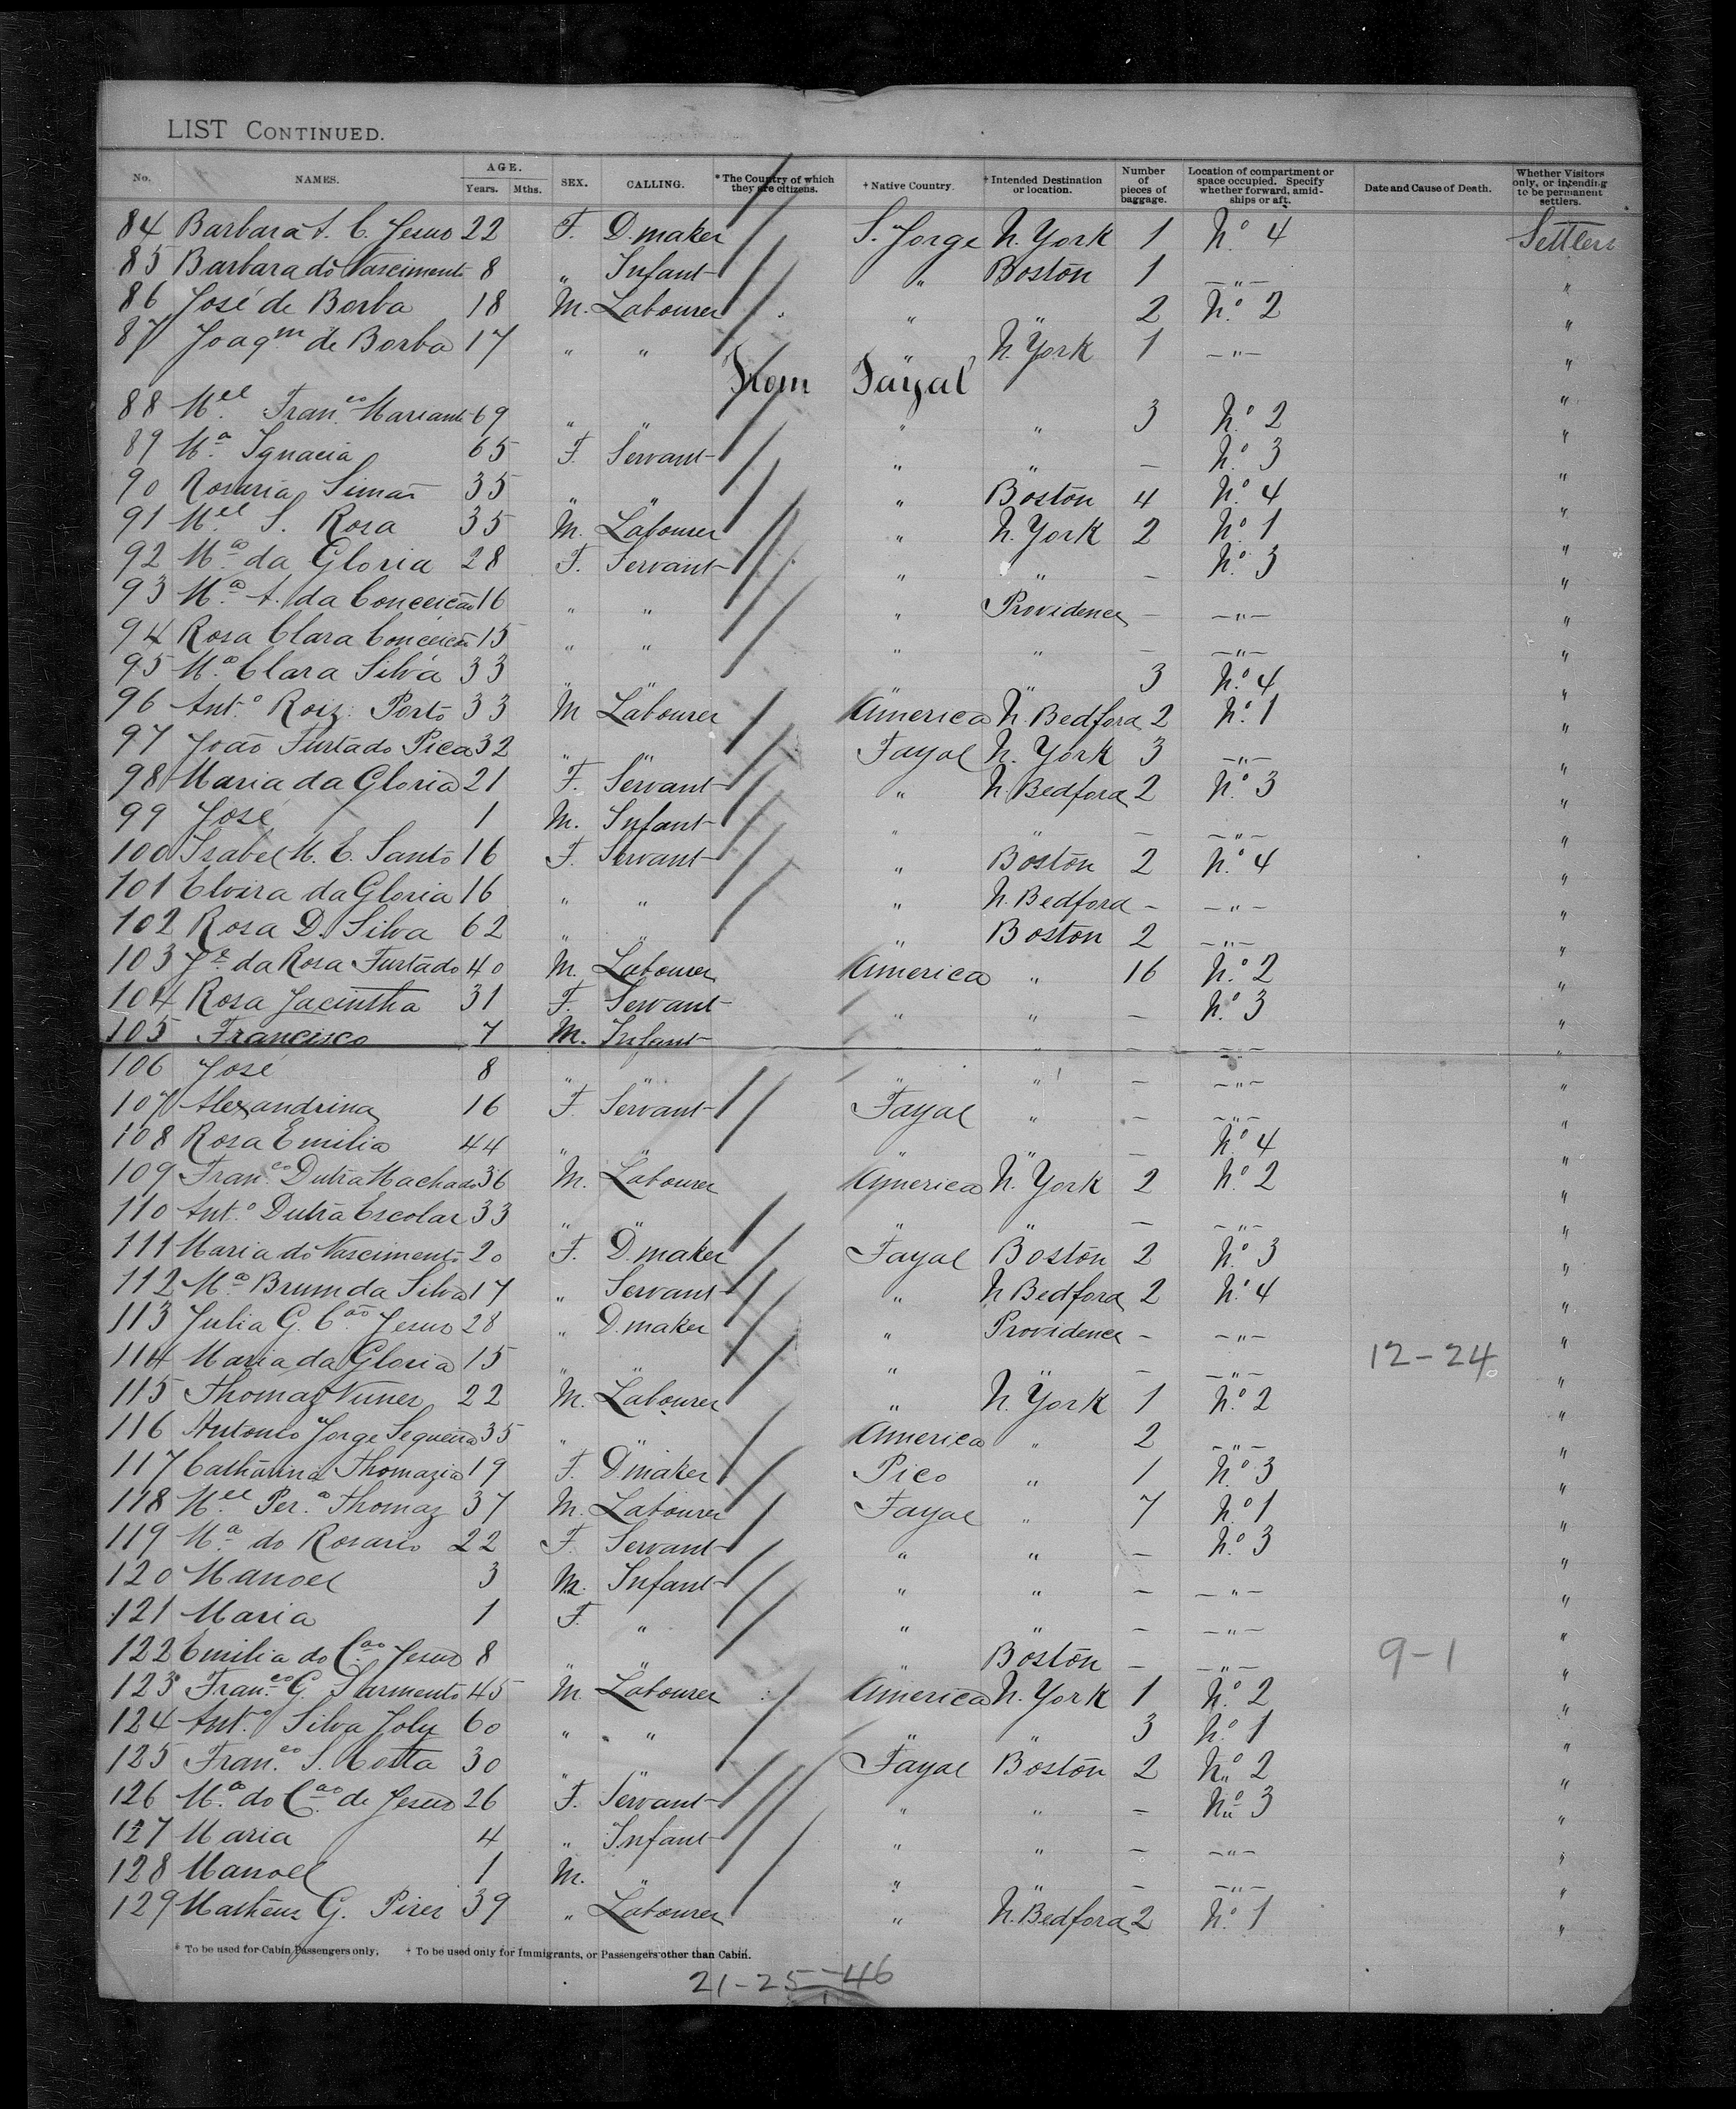 LIST CONTINUED.
No. NAMES. AGE. Years. Mths. SEX. CALLING. * The Country of which they are citizens. † Native Country. † Intended Destination or location. Number of pieces of baggage. Location of compartment or space occupied. Specify whether forward, amid-ships or aft. Date and Cause of Death. Whether Visitors only, or intending to be permanent settlers.
84 Barbara A. C. Jesus 22 F. D. maker S. Jorge N. York 1 No. 4 Settlers
85 Barbara do Nascimento 8 " Infant " Boston 1 —"— "
86 José de Borba 18 M. Labourer " " 2 No. 2 "
87 Joaqm de Borba 17 " " " N. York 1 —"— "
From Fayal
88 Mel Franco Mariante 69 " " " " 3 No. 2 "
89 Ma Ignacia 65 F. Servant " " — No. 3 "
90 Rosaria Simas 35 " " " Boston 4 No. 4 "
91 Mel S. Rosa 35 M. Labourer " N. York 2 No. 1 "
92 Ma da Gloria 28 F. Servant " " — No. 3 "
93 Ma A. da Conceicão 16 " " " Providence — —"— "
94 Rosa Clara Conceicão 15 " " " " — —"— "
95 Ma Clara Silva 33 " " " " 3 No. 4 "
96 Anto Roiz Porto 33 M Labourer America N. Bedford 2 No. 1 "
97 João Furtado Pica 32 " " Fayal N. York 3 —"— "
98 Maria da Gloria 21 F. Servant " N Bedford 2 No. 3 "
99 José 1 M. Infant " " — —"— "
100 Isabel M. E. Santo 16 F. Servant " Boston 2 No. 4 "
101 Elvira da Gloria 16 " " " N. Bedford — —"— "
102 Rosa D. Silva 62 " " " Boston 2 —"— "
103 Je da Rosa Furtado 40 M. Labourer America " 16 No. 2 "
104 Rosa Jacintha 31 F. Servant " " — No. 3 "
105 Francisco 7 M. Infant " " — —"— "
106 José 8 " " " " — —"— "
107 Alexandrina 16 F. Servant Fayal " — —"— "
108 Rosa Emilia 44 " " " " — No. 4 "
109 Franco Dutra Machado 36 M. Labourer America N. York 2 No. 2 "
110 Anto Dutra Escolar 33 " " " " — —"— "
111 Maria do Nascimento 20 F. D. maker Fayal Boston 2 No. 3 "
112 Ma Brum da Silva 17 " Servant " N Bedford 2 No. 4 "
113 Julia G. Cão Jesus 28 " D. maker " Providence — —"— "
114 Maria da Gloria 15 " " " " — —"— 12-24 "
115 Thomaz Nunes 22 M. Labourer " N. York 1 No. 2 "
116 Antonio Jorge Sequeira 35 " " America " 2 —"— "
117 Catharina Thomazia 19 F. D. maker Pico " 1 No. 3 "
118 Mel Pera Thomaz 37 M. Labourer Fayal " 7 No. 1 "
119 Ma do Rosario 22 F. Servant " " — No. 3 "
120 Manoel 3 M. Infant " " — —"— "
121 Maria 1 F. " " " — —"— "
122 Emilia do Cão Jesus 8 " " " Boston — —"— 9-1 "
123 Franco G. Sarmento 45 M. Labourer America N. York 1 No. 2 "
124 Anto Silva Joly 60 " " " " 3 No. 1 "
125 Franco S. Costa 30 " " Fayal Boston 2 No. 2 "
126 Ma do Cão de Jesus 26 F. Servant " " — No. 3 "
127 Maria 4 " Infant " " — —"— "
128 Manoel 1 M. " " " — —"— "
129 Matheus G. Pires 39 " Labourer " N. Bedford 2 No. 1 "
* To be used for Cabin Passengers only. † To be used only for Immigrants, or Passengers other than Cabin.
21-25-46